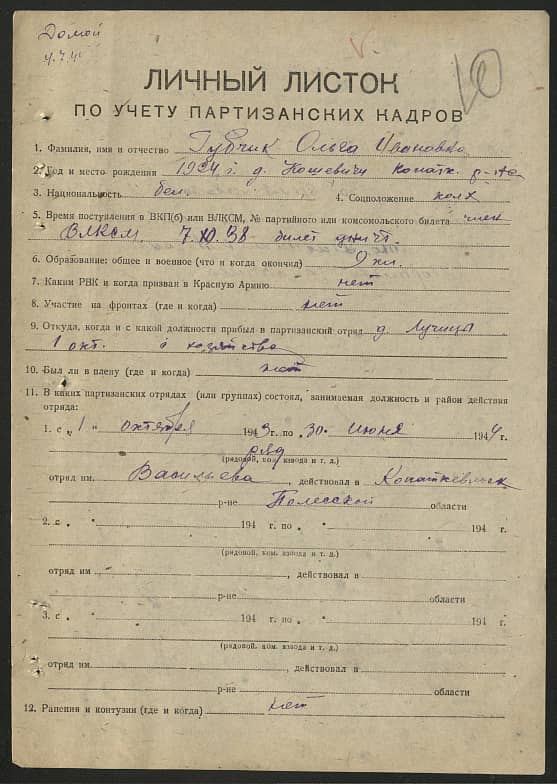 Домой
4.7.44
10
ЛИЧНЫЙ ЛИСТОК
ПО УЧЕТУ ПАРТИЗАНСКИХ КАДРОВ
1. Фамилия, имя и отчество Губчик Ольга Ивановна
2. Год и место рождения 1924 г. д. Кошевичи Копатк. р-на
3. Национальность бел. 4. Соцположение колх
5. Время поступления в ВКП(б) или ВЛКСМ, № партийного или комсомольского билета член
ВЛКСМ. 7.XI.38 билет уничт
6. Образование: общее и военное (что и когда окончил) 9 кл.
7. Каким РВК и когда призван в Красную Армию нет
8. Участие на фронтах (где и когда) нет
9. Откуда, когда и с какой должности прибыл в партизанский отряд д. Лучицы
1 окт. с хозяйства
10. Был ли в плену (где и когда) нет
11. В каких партизанских отрядах (или группах) состоял, занимаемая должность и район действия
отряда:
1. с „ 1 " октября 1943 г. по 30. июня 1944 г.
ряд
(рядовой, ком. взвода и т. д.)
отряд им. Васильева, действовал в Копаткевичск
р-не Полесской области
2. с „ " 194 г. по „ " 194 г.
(рядовой, ком. взвода и т. д.)
отряд им , действовал в
р-не области
3. с „ " 194 г. по „ " 194 г.
(рядовой, ком. взвода и т. д.)
отряд им. , действовал в
р-не области
12. Ранения и контузии (где и когда) нет